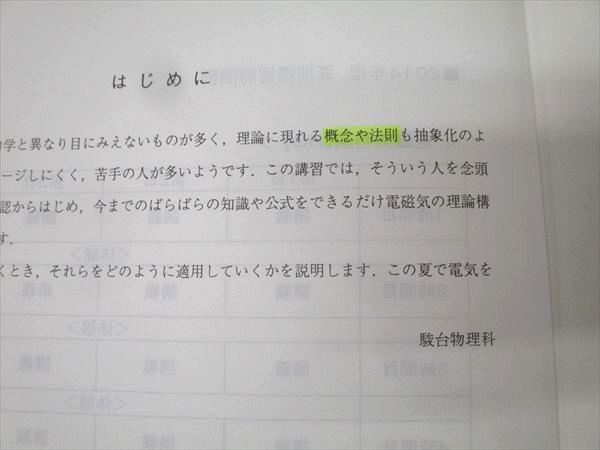 はじめに
学と異なり目にみえないものが多く，理論に現れる概念や法則も抽象化のよ
ージしにくく，苦手の人が多いようです．この講習では，そういう人を念頭
認からはじめ，今までのばらばらの知識や公式をできるだけ電磁気の理論構
す．
くとき，それらをどのように適用していくかを説明します．この夏で電気を
駿台物理科